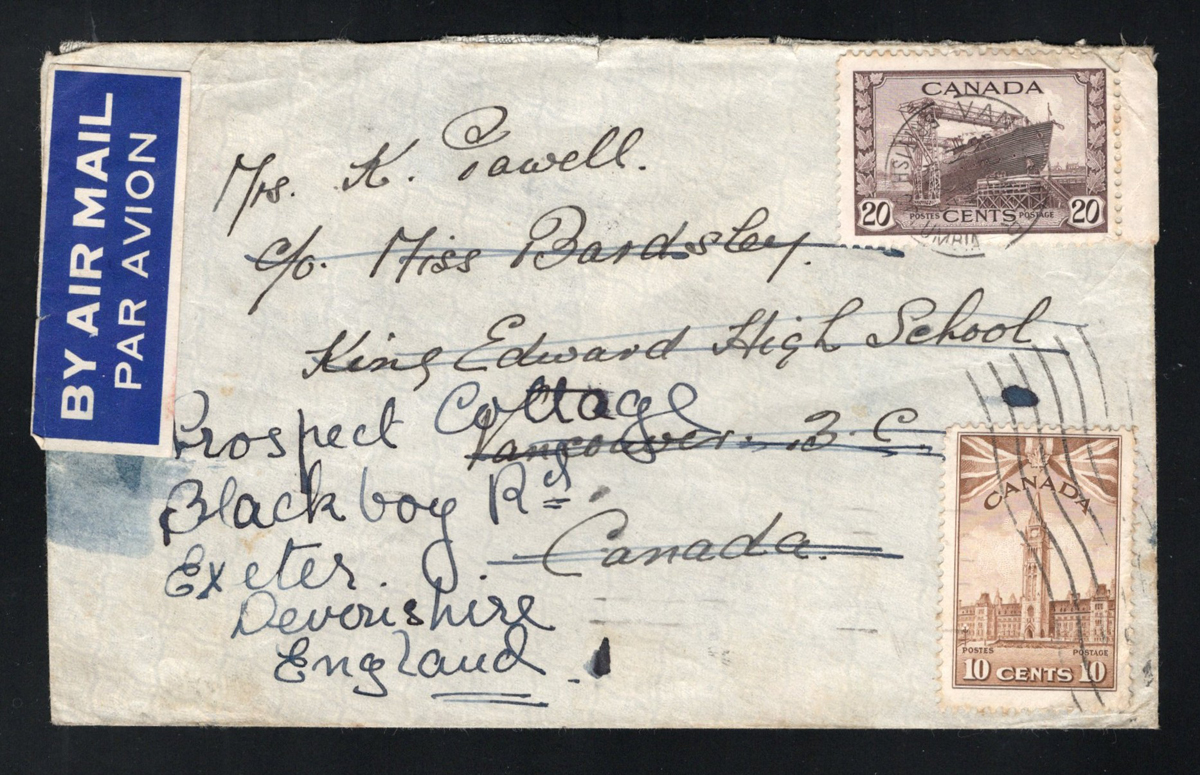 BY AIR MAIL
PAR AVION
CANADA
20 POSTES CENTS POSTAGE 20
Mrs. K. Powell.
c/o. Miss Bardsley.
King Edward High School
Vancouver. B.C.
Canada.
Prospect Cottage
Blackboy Rd
Exeter.
Devonshire
England
CANADA
POSTES POSTAGE
10 CENTS 10